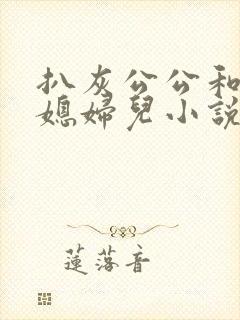 扒灰公公和
媳婦兒小說
蓮落音